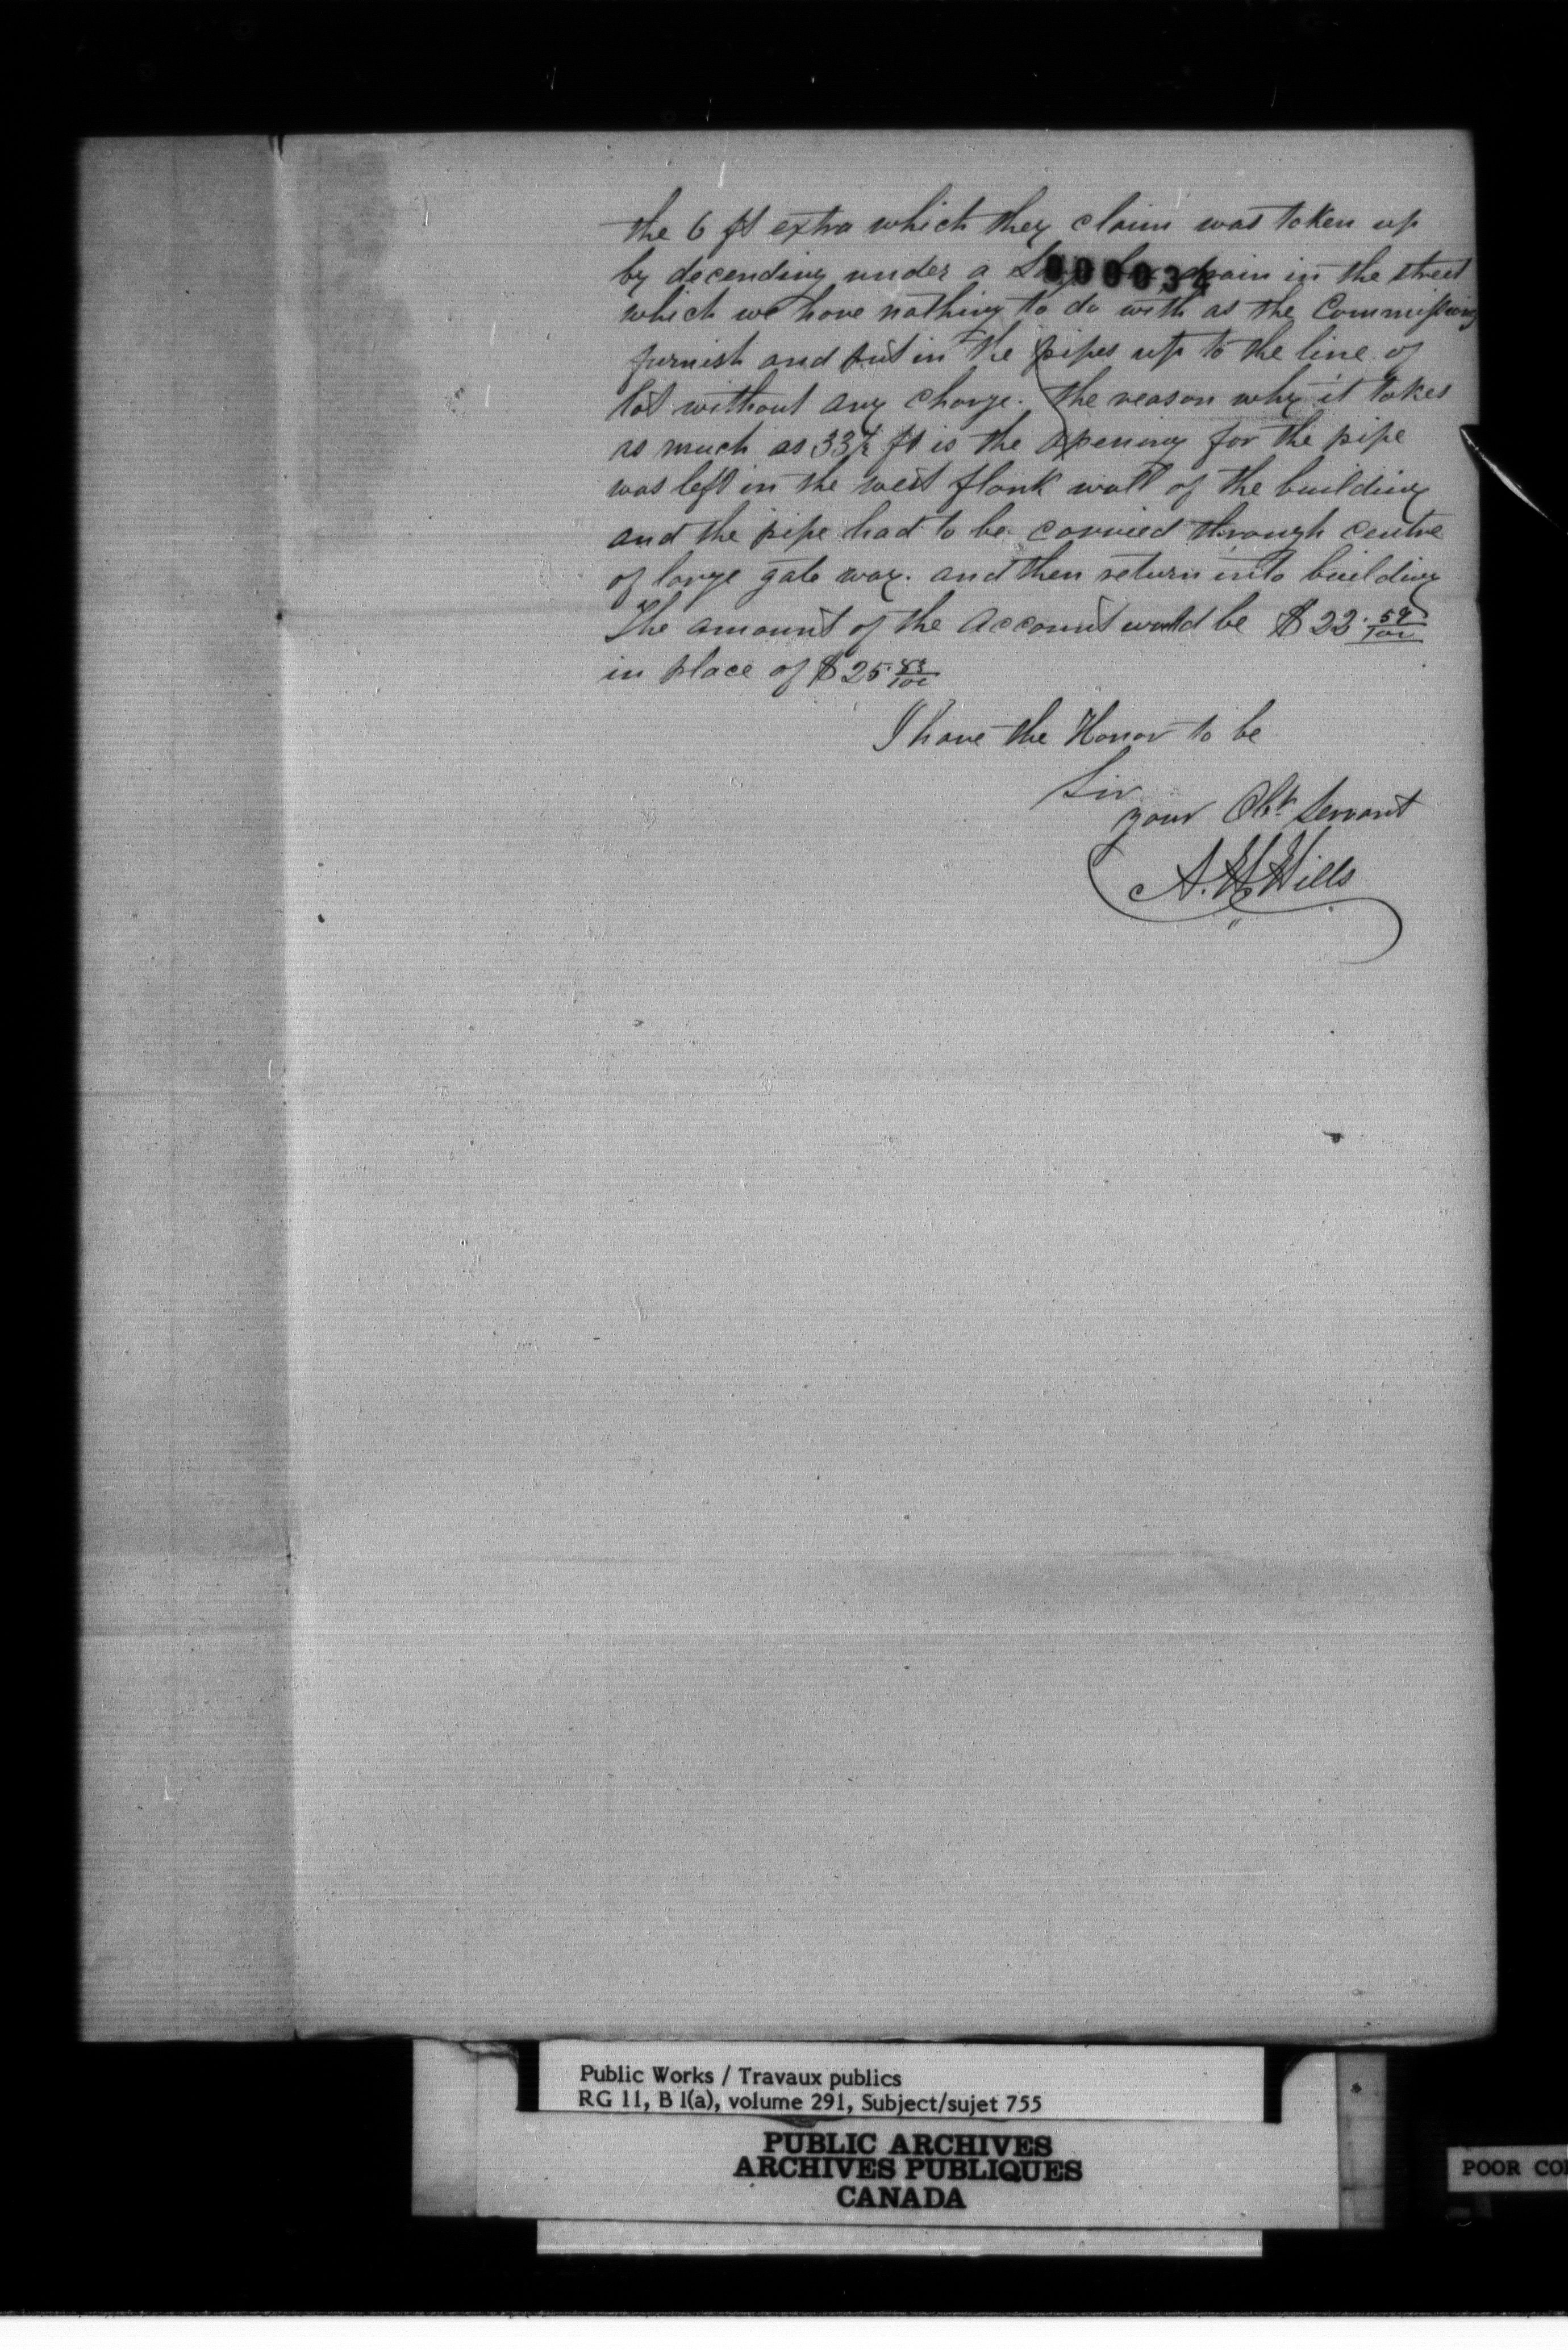 the 6 ft extra which they claim was taken up
by decending under a drain in the street
000034
which we have nothing to do with as the Commissioners
furnish and put in the pipes up to the line of
lot without any charge. the reason why it takes
as much as 33½ ft is the opening for the pipe
was left in the west flank wall of the building
and the pipe had to be carried through centre
of large gate way. and then return into building
The amount of the account would be $22.59/100
in place of $25.83/100
I have the Honor to be
Sir
your Obt Servant
A. H. Hills
Public Works / Travaux publics
RG 11, B 1(a), volume 291, Subject/sujet 755
PUBLIC ARCHIVES
ARCHIVES PUBLIQUES
CANADA
POOR